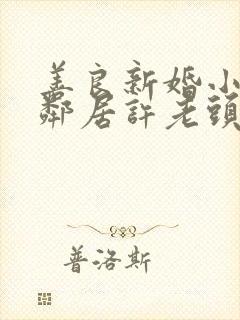 善良新婚小
鄰居許老頭
普洛斯